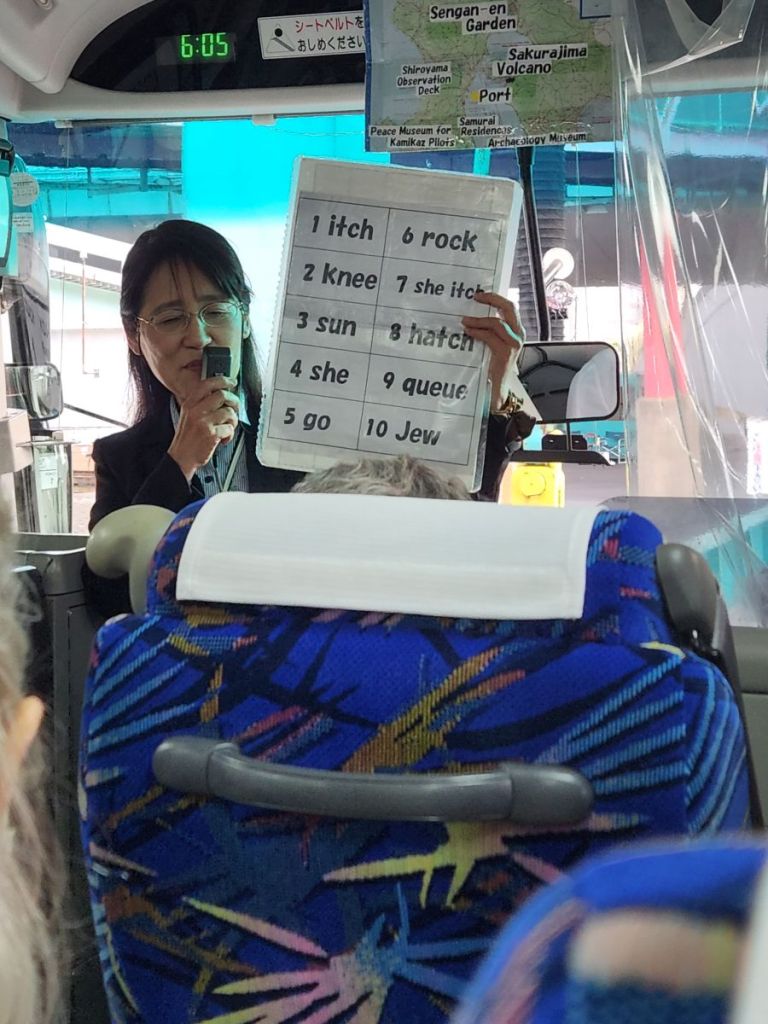 6:05
シートベルトを
おしめください
Sengan-en
Garden
Sakurajima
Volcano
Shiroyama
Observation
Deck
Port
Samurai
Residences
Peace Museum for
Kamikaz Pilots
Archaeology Museum
1 itch
6 rock
2 knee
7 she itch
3 sun
8 hatch
4 she
9 queue
5 go
10 Jew